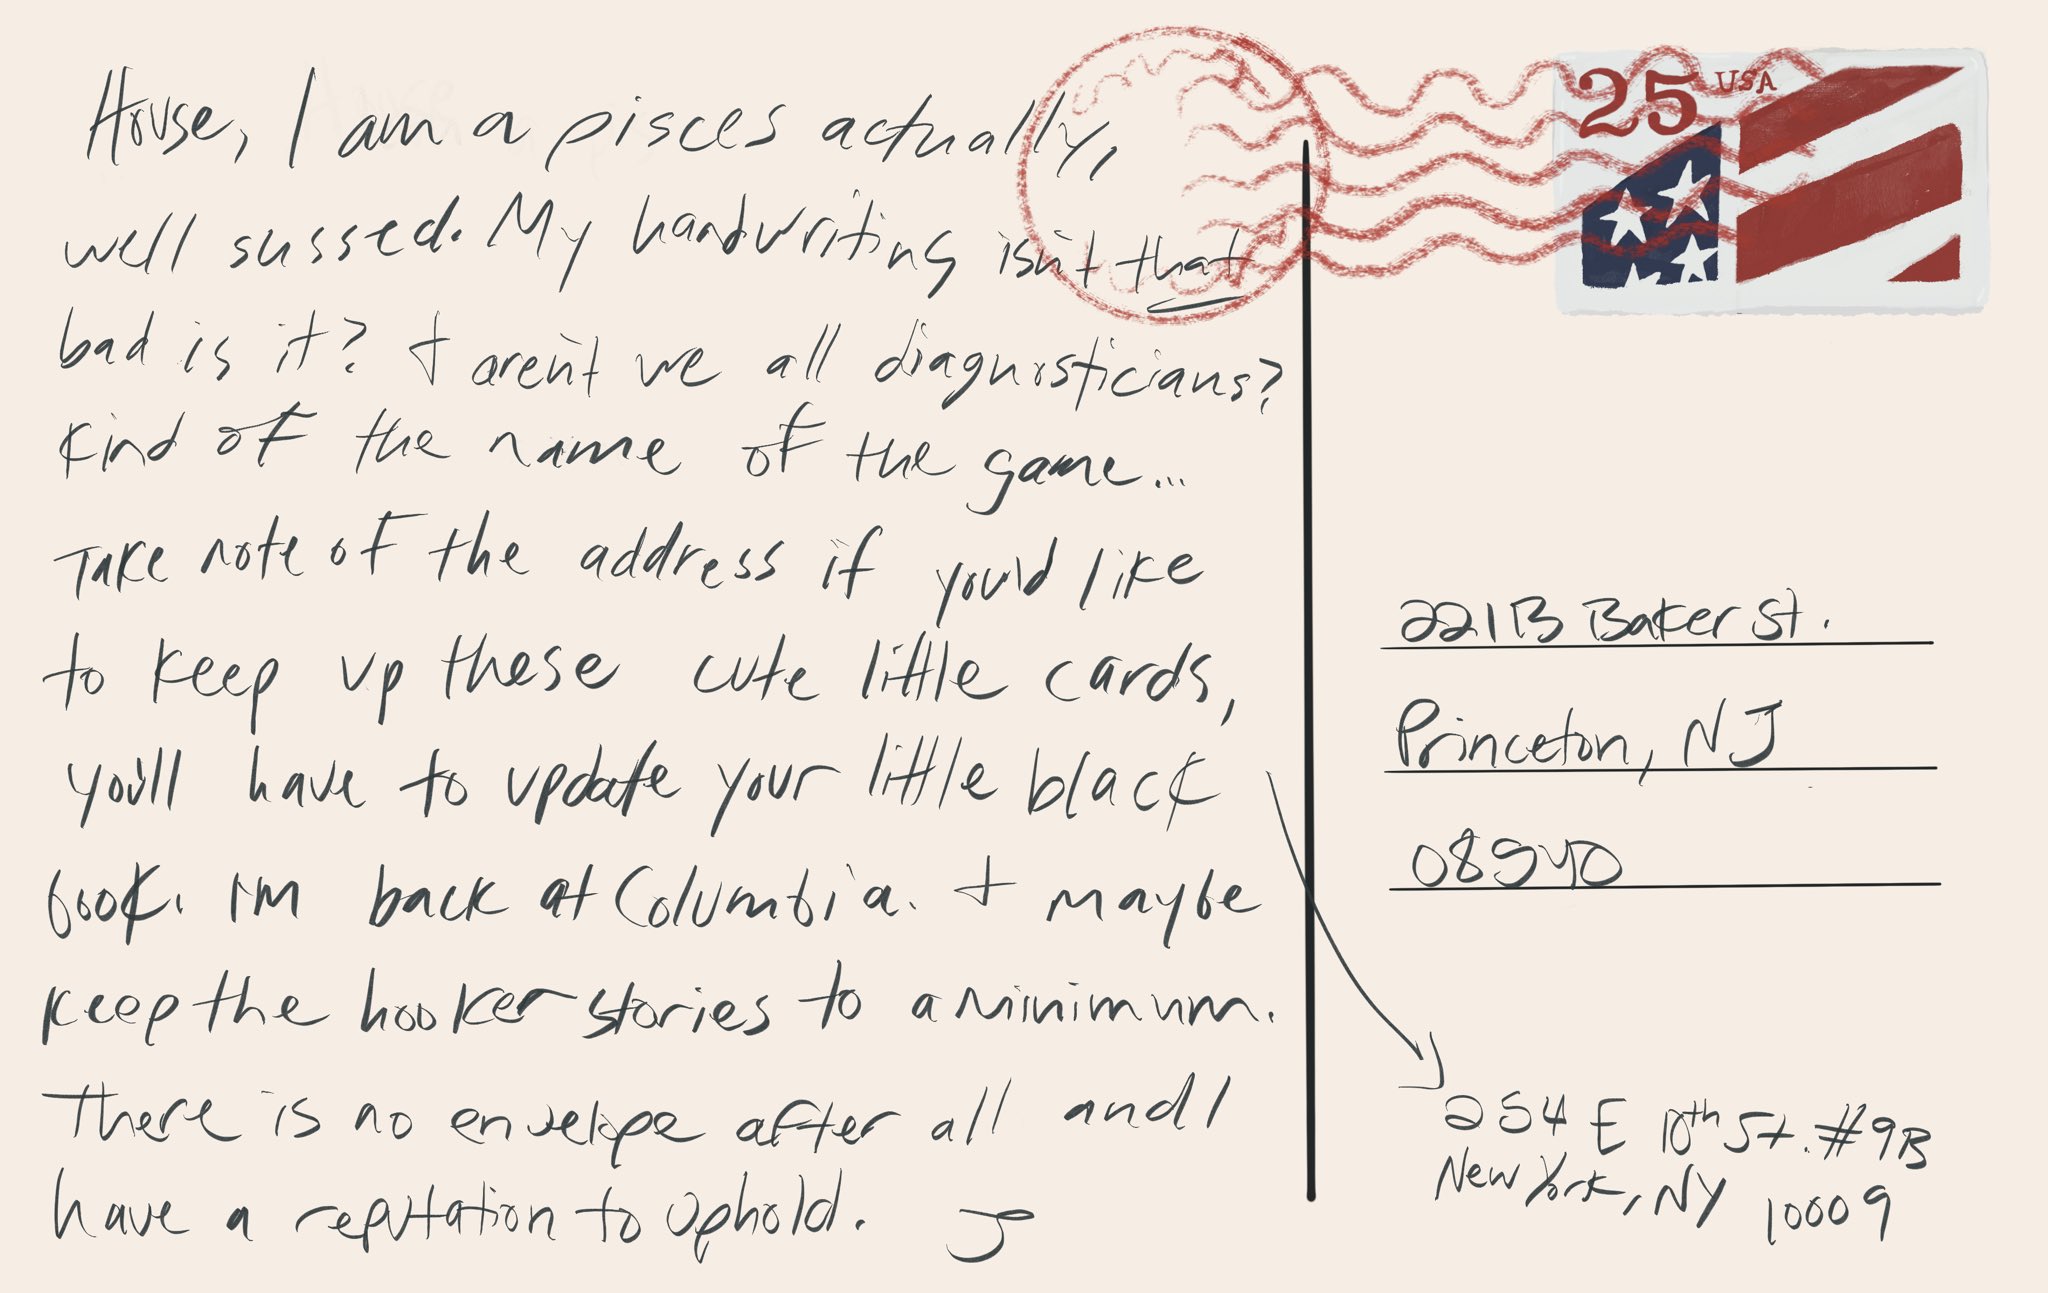 House, I am a pisces actually,
well sussed. My handwriting isn't that
bad is it? + aren't we all diagnosticians?
Kind of the name of the game...
Take note of the address if you'd like
to keep up these cute little cards,
you'll have to update your little black
book. I'm back at Columbia. + maybe
keep the hooker stories to a minimum.
There is no envelope after all and I
have a reputation to uphold. J
25 USA
221B Baker St.
Princeton, NJ
08540
254 E 10th St. #9B
New York, NY 10009